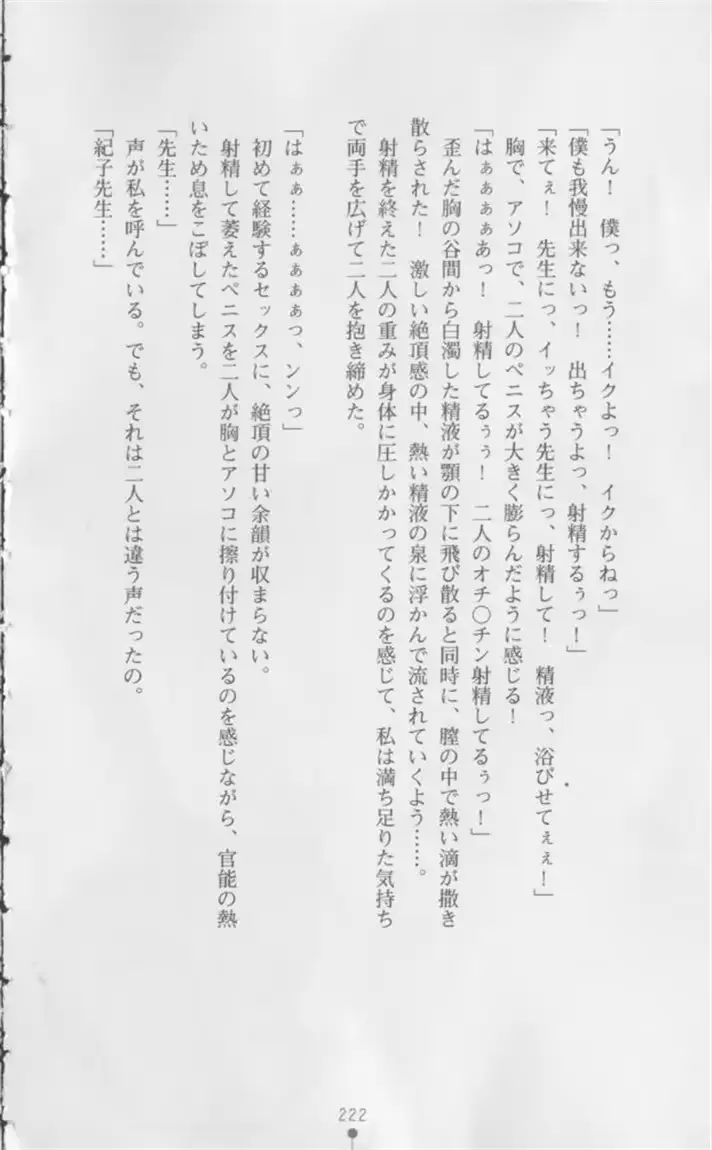 「うん！　僕っ、もう……イクよっ！　イクからねっ」
「僕も我慢出来ないっ！　出ちゃうよっ、射精するぅっ！」
「来てぇ！　先生にっ、イッちゃう先生にっ、射精して！　精液っ、浴びせてぇぇ！」
　胸で、アソコで、二人のペニスが大きく膨らんだように感じる！
「はぁぁぁぁあっ！　射精してるぅぅ！　二人のオチ〇チン射精してるぅっ！」
　歪んだ胸の谷間から白濁した精液が顎の下に飛び散ると同時に、膣の中で熱い滴が撒き
散らされた！　激しい絶頂感の中、熱い精液の泉に浮かんで流されていくよう……。
　射精を終えた二人の重みが身体に圧しかかってくるのを感じて、私は満ち足りた気持ち
で両手を広げて二人を抱き締めた。
「はぁぁ……ぁぁぁぁっ、ンンっ」
　初めて経験するセックスに、絶頂の甘い余韻が収まらない。
　射精して萎えたペニスを二人が胸とアソコに擦り付けているのを感じながら、官能の熱
いため息をこぼしてしまう。
「先生……」
　声が私を呼んでいる。でも、それは二人とは違う声だったの。
「紀子先生……」
222